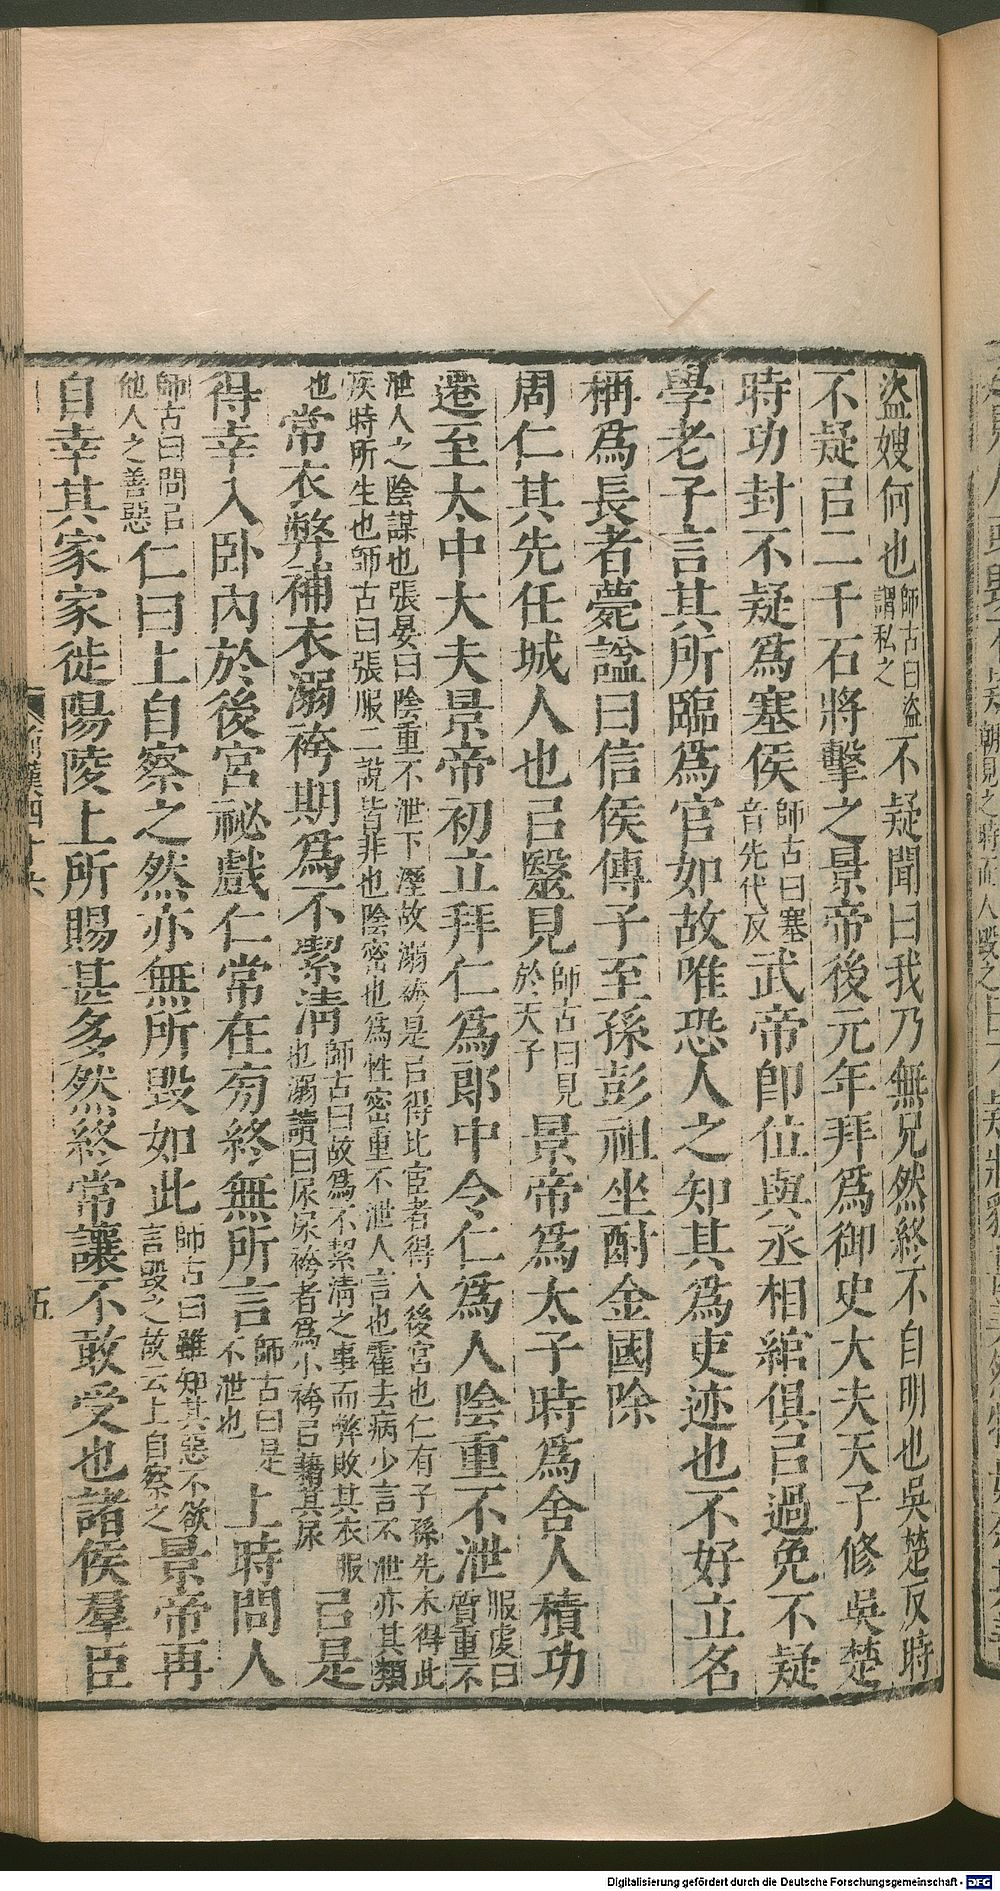 盜嫂何也師古曰盜謂私之不疑聞曰我乃無兄然終不自明也吳楚反時
不疑㠯二千石將擊之景帝後元年拜爲御史大夫天子修吳楚
時功封不疑爲塞侯師古曰塞音先代反武帝卽位與丞相綰俱㠯過免不疑
學老子言其所臨爲官如故唯恐人之知其爲吏迹也不好立名
稱爲長者薨諡曰信侯傳子至孫彭祖坐酎金國除
周仁其先任城人也㠯毉見師古曰見於天子景帝爲太子時爲舍人積功
遷至太中大夫景帝初立拜仁爲郎中令仁爲人陰重不泄服虔曰質重不
泄人之陰謀也張晏曰陰重不泄下溼故溺袴是㠯得比宦者得入後宮也仁有子孫先未得此
疾時所生也師古曰張服二說皆非也陰密也爲性密重不泄人言也霍去病少言不泄亦其類
也常衣弊補衣溺袴期爲不絜淸師古曰故爲不絜淸之事而弊敗其衣服也溺讀曰尿尿袴者爲小袴㠯藉其尿㠯是
得幸入卧內於後宮祕戲仁常在旁終無所言師古曰是不泄也上時問人
師古曰問㠯他人之善惡仁曰上自察之然亦無所毀如此師古曰雖知其惡不欲言毀之故云上自察之景帝再
自幸其家家徙陽陵上所賜甚多然終常讓不敢受也諸侯羣臣
五
Digitalisierung gefördert durch die Deutsche Forschungsgemeinschaft - DFG